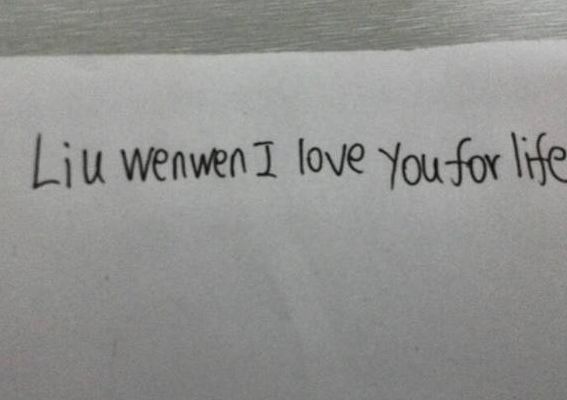 Liu wenwen I love you for life